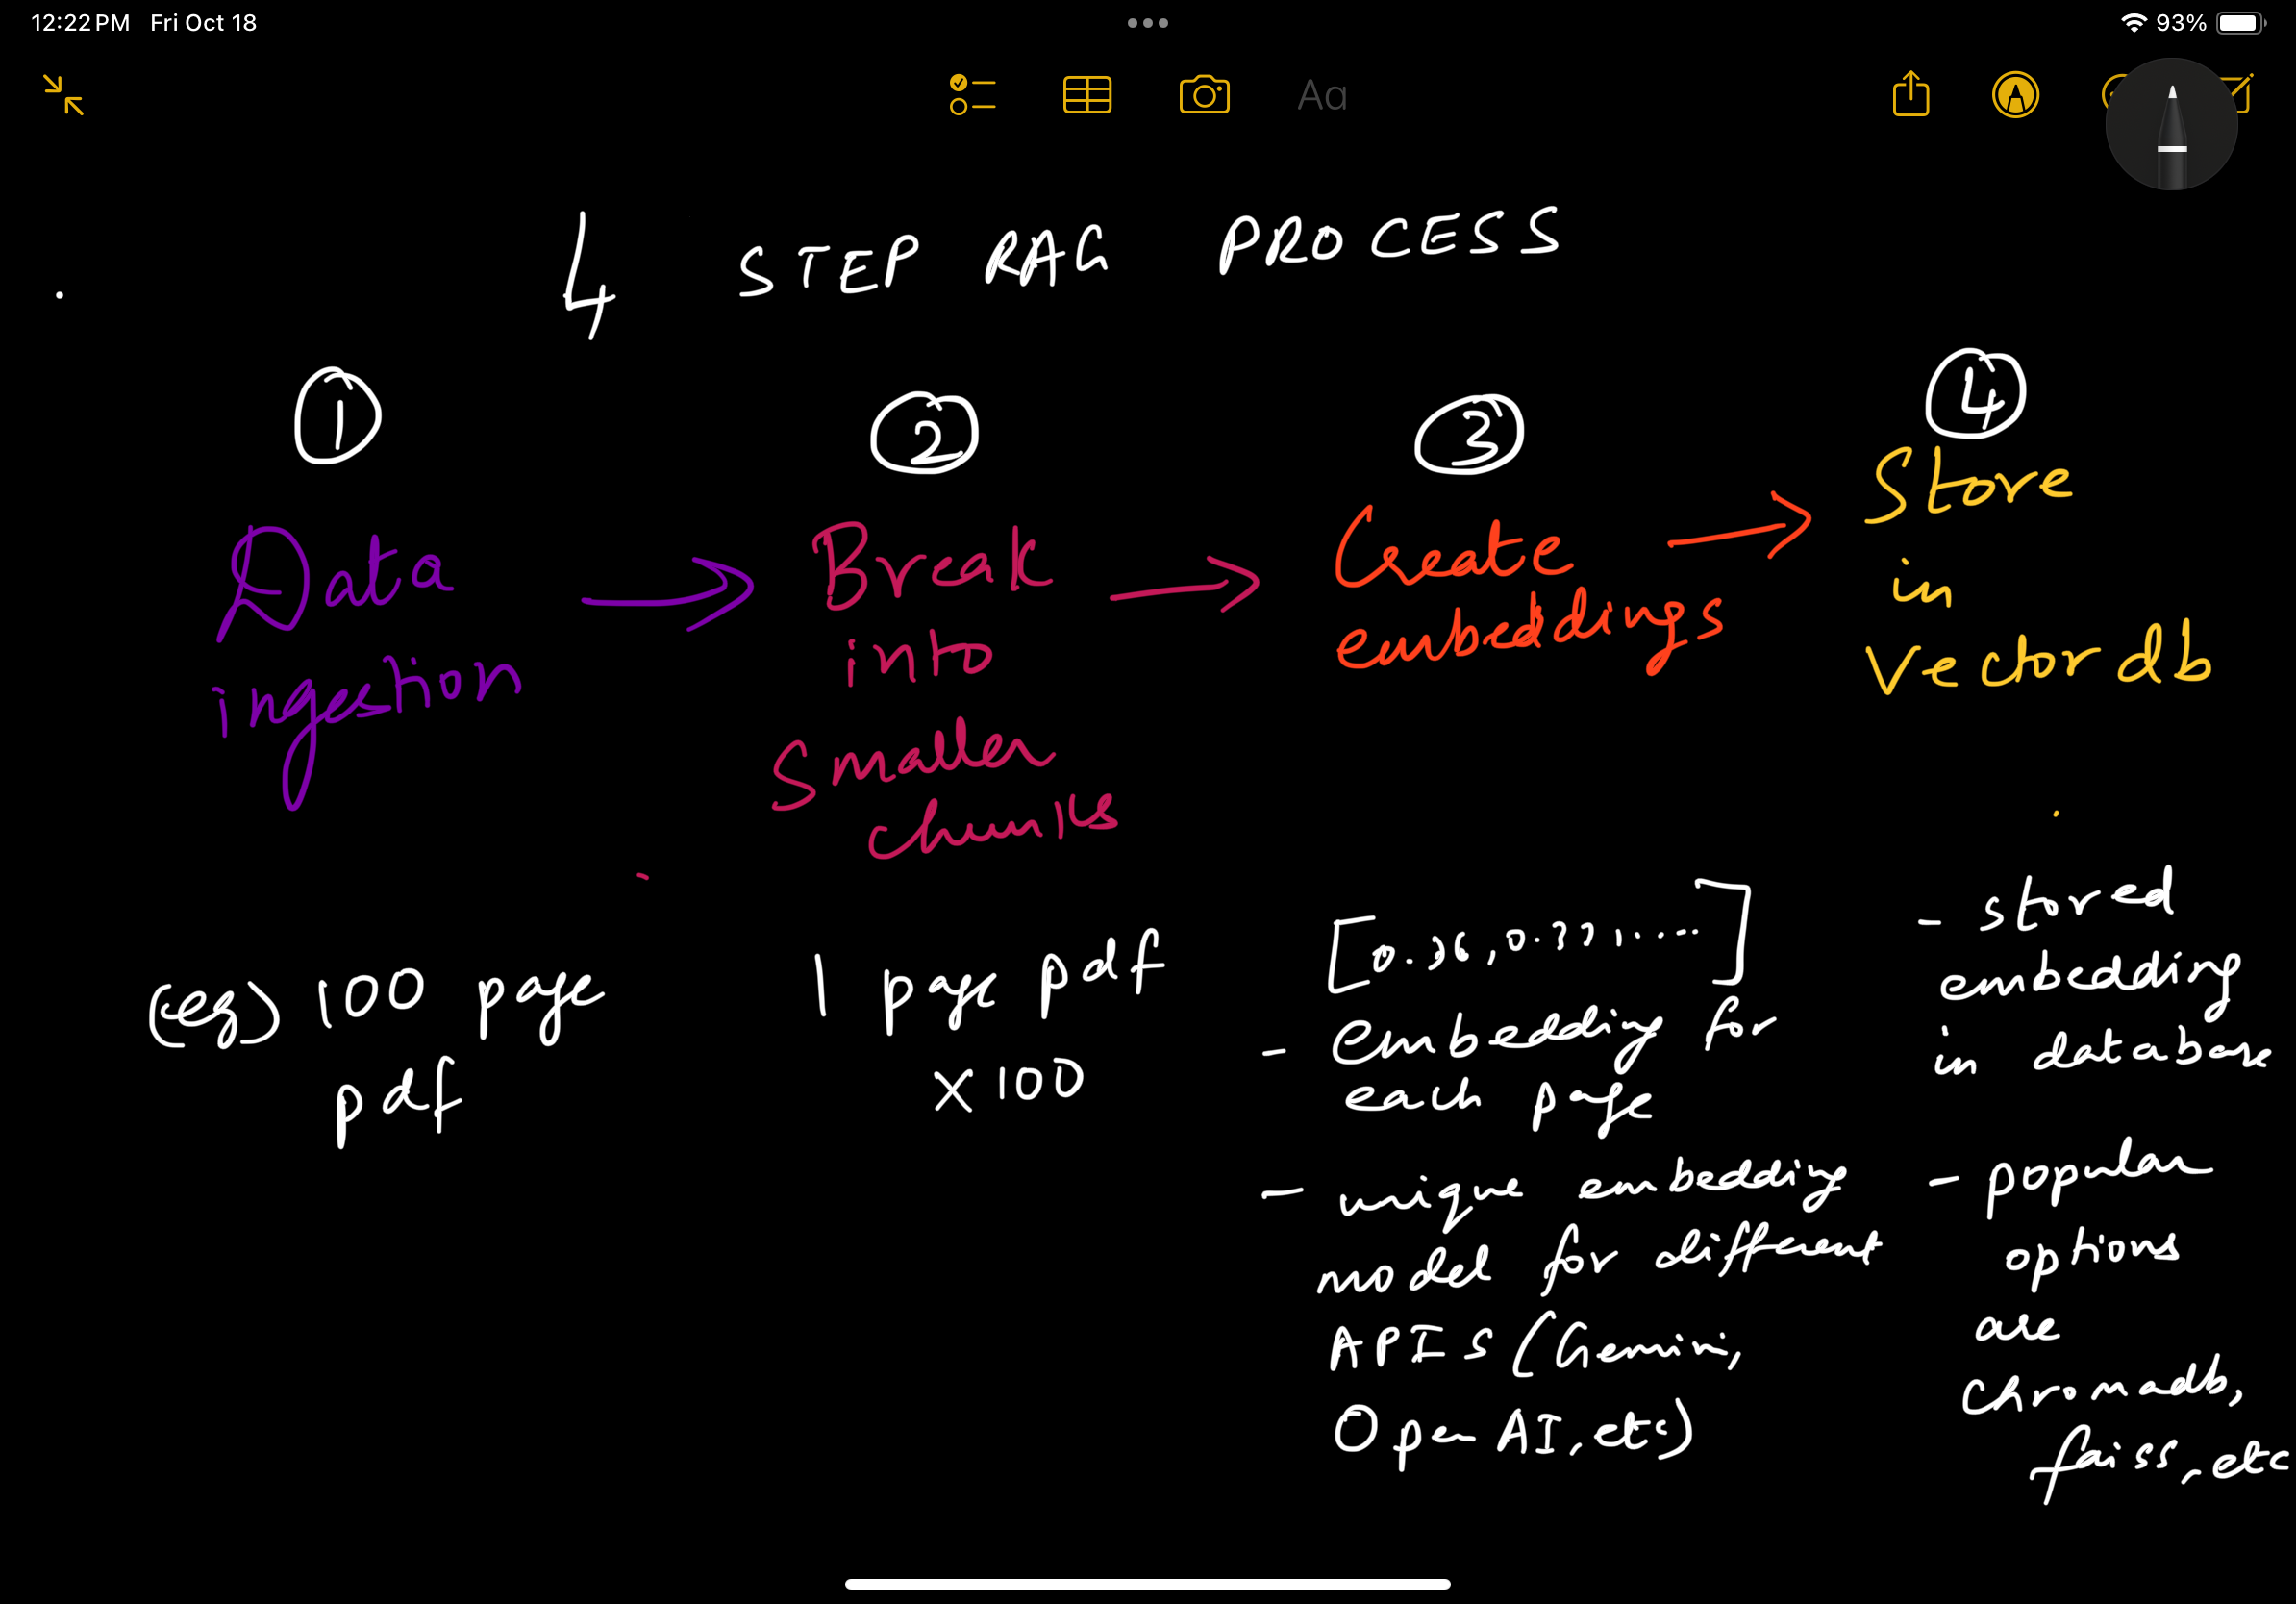 12:22 PM Fri Oct 18
93%
Aa
4 STEP RAG PROCESS
1
Data
ingestion
(eg) 100 page
pdf
2
Break
into
Smaller
chunks
1 page pdf
x 100
3
Create
embeddings
[0.36, 0.33, .....]
- embedding for
each page
- unique embedding
model for different
APIS (Gemini,
Open AI, etc)
4
Store
in
Vector db
- stored
embedding
in database
- popular
options
are
chromadb,
faiss, etc